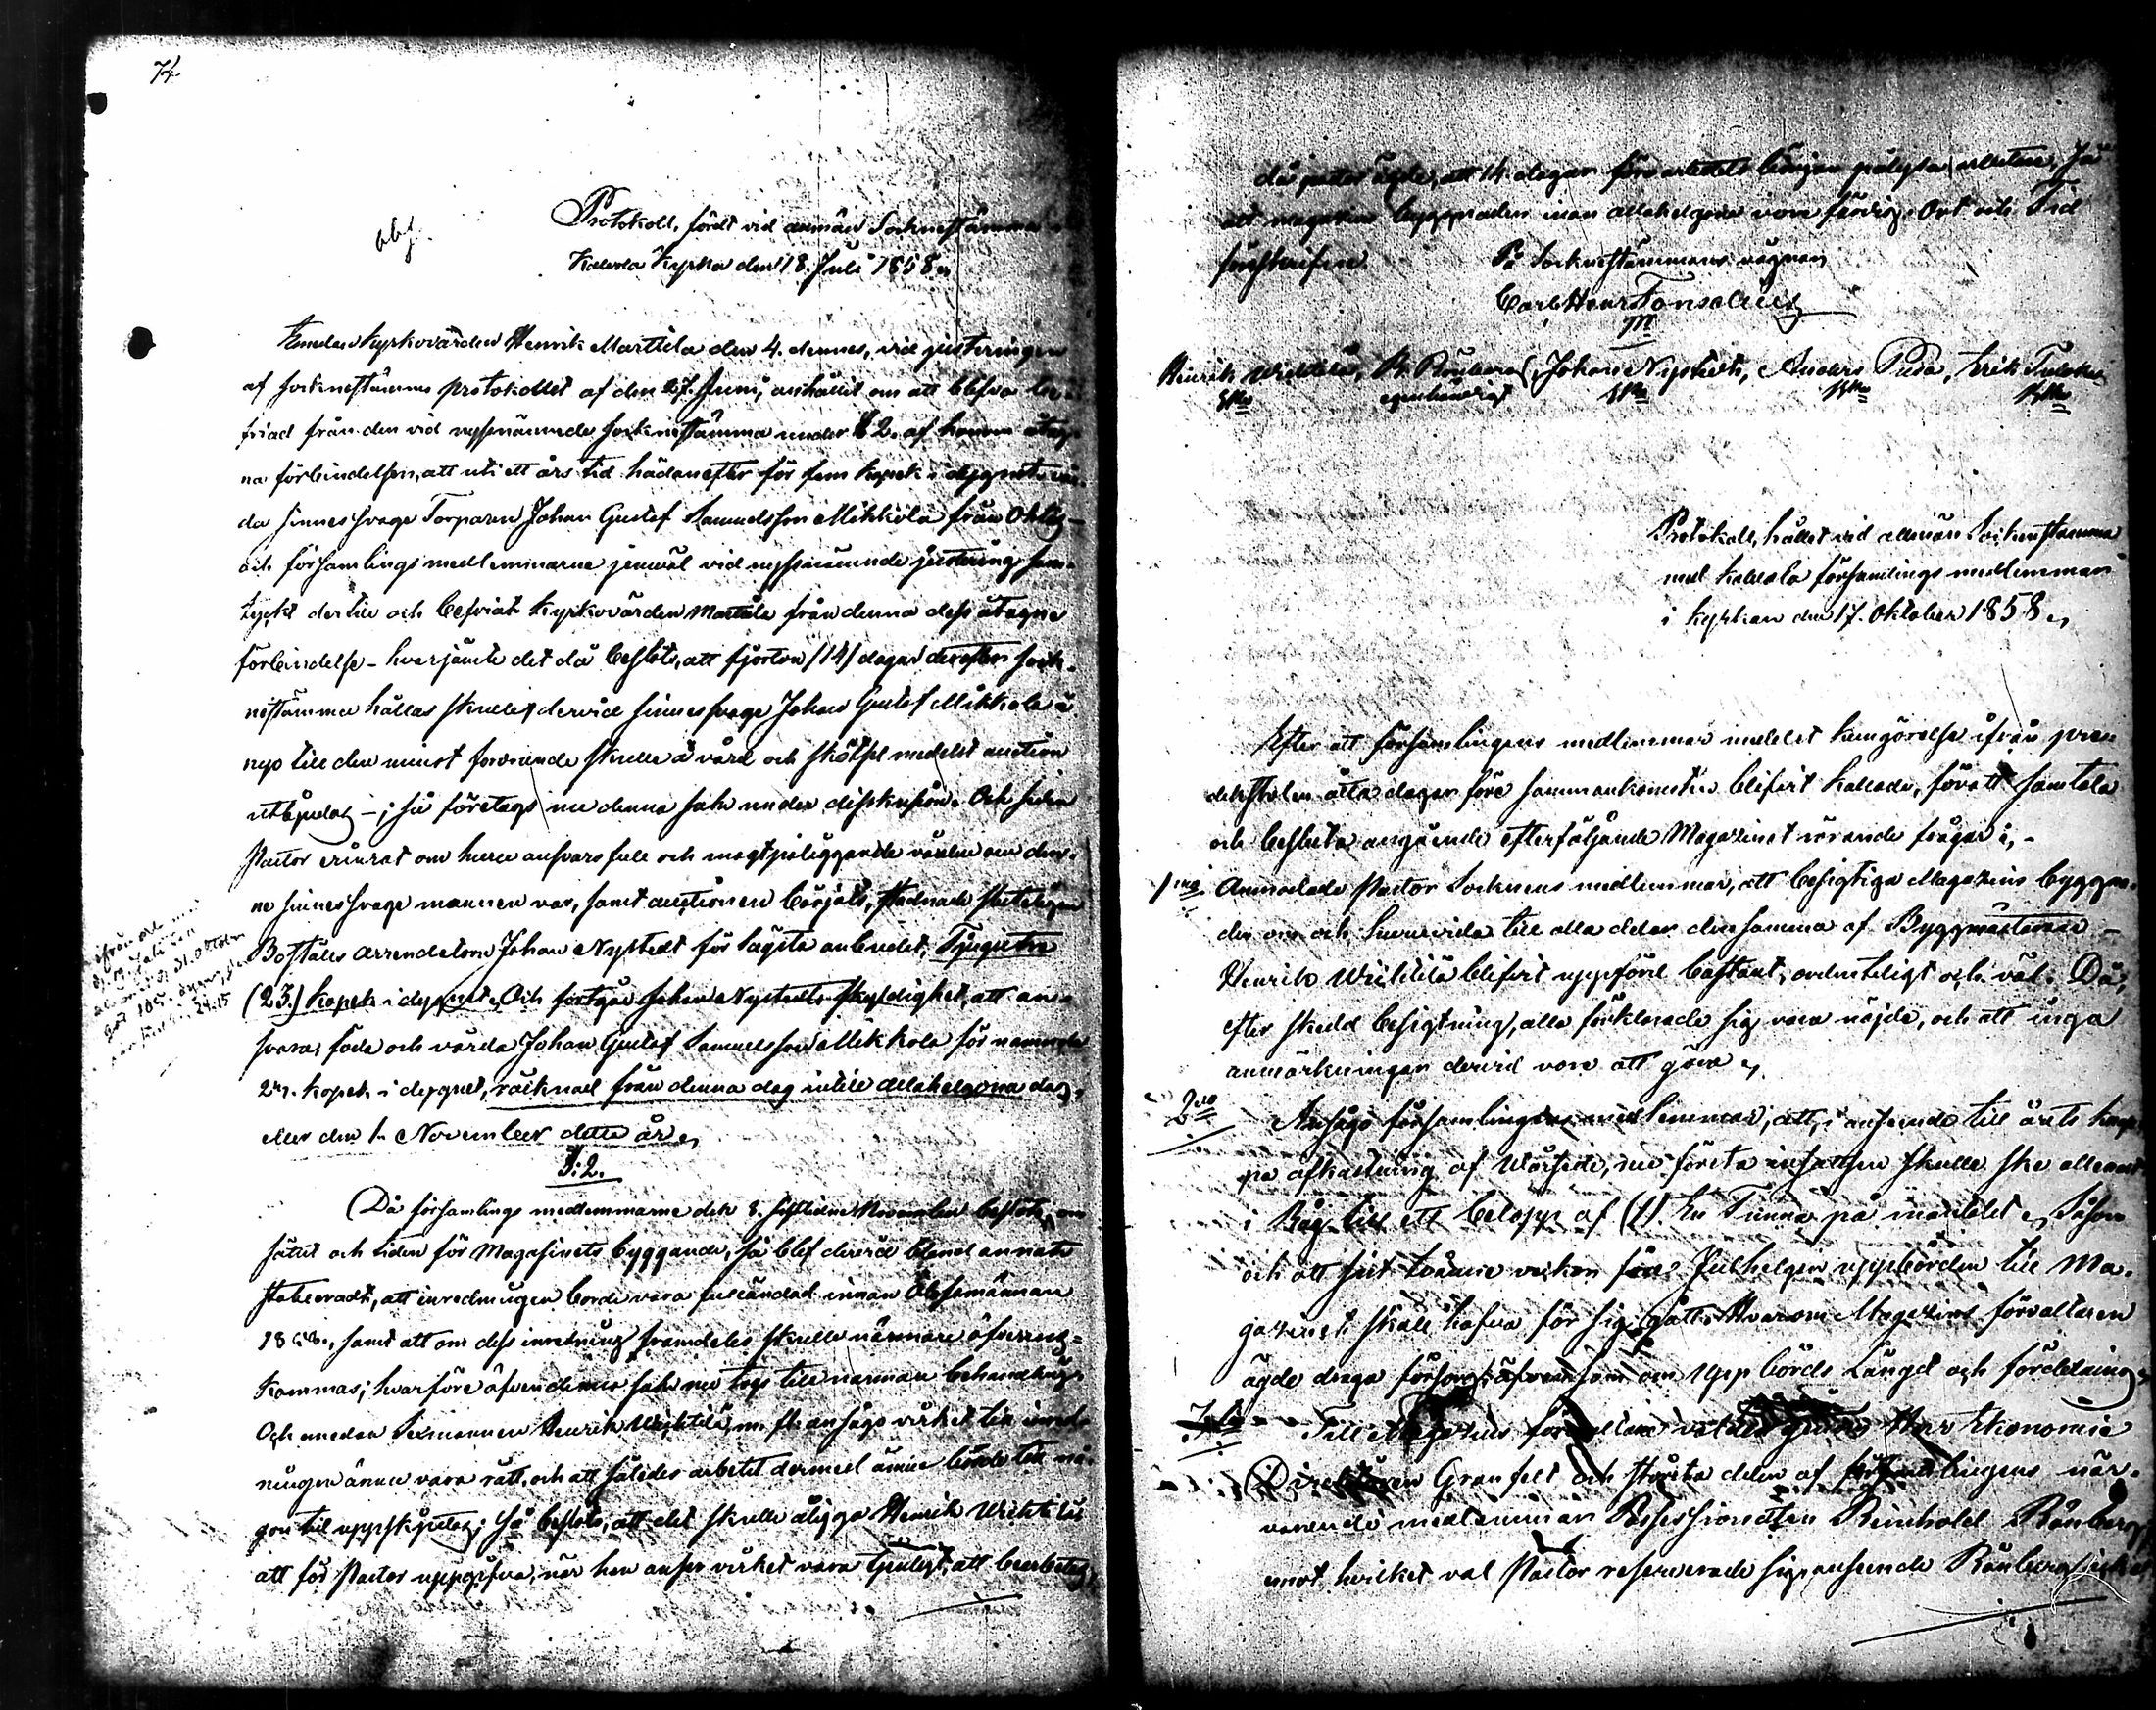 74
Protokoll, fördt vid allmän Socknestämma i
Kalvola Kyrka den 18. Juli 1858.
Emedan Kyrkovärden Henrik Marttila den 4. dennes, vid justeringen
af socknestämmo protokollet af den 27. Juni, anhållit om att blifva be-
friad från den vid nyssnämnde sockenstämma under § 2. af honom åtag-
na förbindelsen, att uti ett års tid hädanefter för fem kopek i dygnet vår-
da sinnessvage Torparen Johan Gustaf Samuelsson Mikkola från
och församlings medlemmarne jemväl vid nyssnämnde justering sam-
tyckt dertill och befriat Kyrkovärden Marttila från denna dess åtagne
förbindelse – hvarjämte det då beslöts, att fjorton (14) dagar derefter sock-
nestämma hållas skulle, dervid sinnessvage Johan Gustaf Mikkola å
nyo till den minst fordrande skulle å vård och skötsel medelst auction
utbjudas –; så företogs nu denna sak under diskussion. Och sedan
Pastor erinrat om huru ansvarsfull och magtpåliggande vården om den-
ne sinnessvage mannen var, samt auctionen börjats, stadnade slutligen
Boställs arrendatorn Johan Nystedt för lägsta anbudet, Tjugutre
(23.) kopek i dygnet. Och förtgår Johan Nystedts skyldighet, att an-
svara, föda och vårda Johan Gustaf Samuelsson Mikkola för nämnde
23. kopek i dygnet, räcknad från denna dag intill allahelgona dag,
eller den 1. November detta år.
§: 2.
Då församlings medlemmarne den 8. sistlidne November beslöto om
sättet och tiden för Magasinets byggande, så blef dervid bland annat
stadgadt, att inredningen borde vara fulländad innan Olofsmässan
1858., samt att om dess inredning framdeles skulle närmare öfverens-
kommas; hvarföre äfven denna sak nu togs till närmare behandling.
Och emedan Sexmannen Henrik Wichtilä m. fl. ansågo virket till inred-
ningen ännu vara rått, och att således arbetet dermed ännu borde till nå-
gon tid uppskjutas; så beslöts, att det skulle åligga Henrik Wichtilä
att för Pastor uppgifva, när han anser virket vara tjenligt, att bearbetas,
då pastor ägde, att 14 dagar före arbetets början pålysa arbetare, så
att magasins byggnaden innan allahelgona vore färdig. Ort och Tid
förutskrifne.
På Sockenstämmans vägnar
Carl Henr Fonselius
Henrik Wichtilä, R. Rönberg, Johan Nystedt, Anders Pusa, Erik
egenhändigt
Protokoll, hållet vid allmän Sockenstämma
med Kalvola församlings medlemmar
i kyrkan den 17. Oktober 1858.
Efter att församlingens medlemmar medelst kungörelse ifrån predi-
kstolen åtta dagar före sammankomsten blifvit kallade, för att samtala
och besluta angående efterföljande Magasinet rörande frågor;,-
1mo Anmodade Pastor Socknens medlemmar, att besigtiga Magasins byggna-
den om och huruvida till alla delar densamma af Byggmästaren –
Henrik Wichtilä blifvit uppförd bastant, ordentligt och väl. Då,
efter skedd besigtning, alla förklarade sig vara nöjde, och att inga
anmärkningar dervid vore att göra.
2do Ansågo församlingens medlemmar, att, i anseende till årets knap-
pa afkastning af Wårsäde, nu första insatsen skulle ske allenast
i Råg till ett belopp af (1). En Tunna på mantalet. Såsom
och att sist Tvänne veckor före Julhelgen uppbörden till Ma-
gasinet skall hafva för sig gått. Hvarom Magasins förvaltaren
ägde draga försorg, äfvensom om Uppbörds Längd och fördelning.
3tio Till Magasins förvaltare valdes Herr Ekonomie
Direktören Granfelt och största delen af församlingens när-
varande medlemmar Possessionaten Reinhold Rönberg,
emot hvilket val Pastor reserverade sig, anseende Rönberg icke